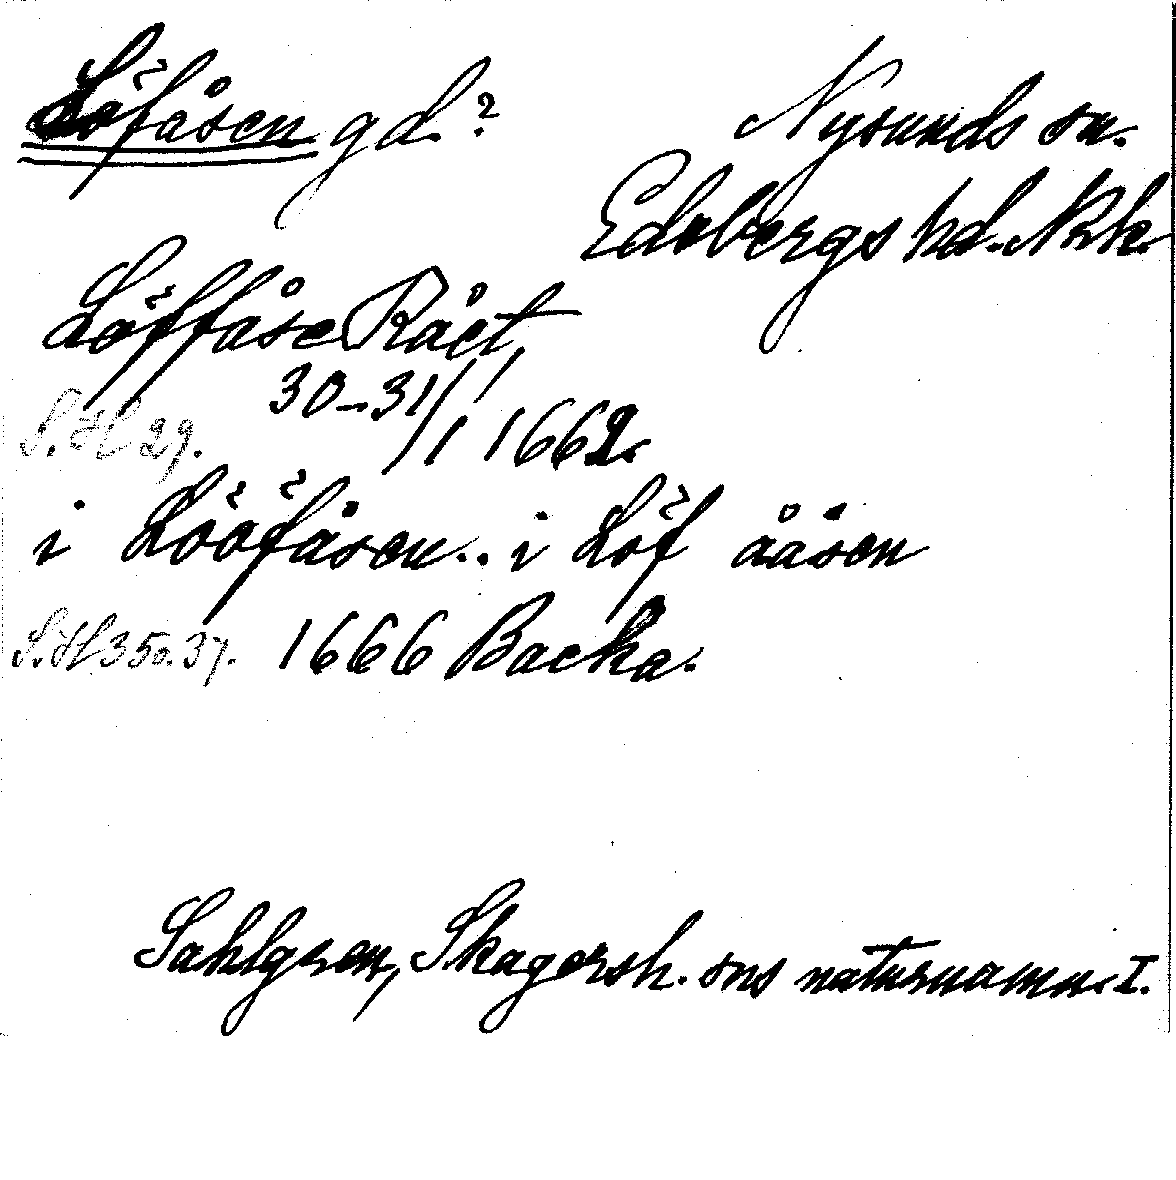 Löfåsen gd?
Nysunds sn.
Edsbergs hd. Nrk.
Löffåse Råct,
30–31/1 1662.
S. 29.
i Löofåsen.. i Löf ååsen
S. 350.37. 1666 Backa.
Sahlgren, Skagersh. sns naturnamn. I.